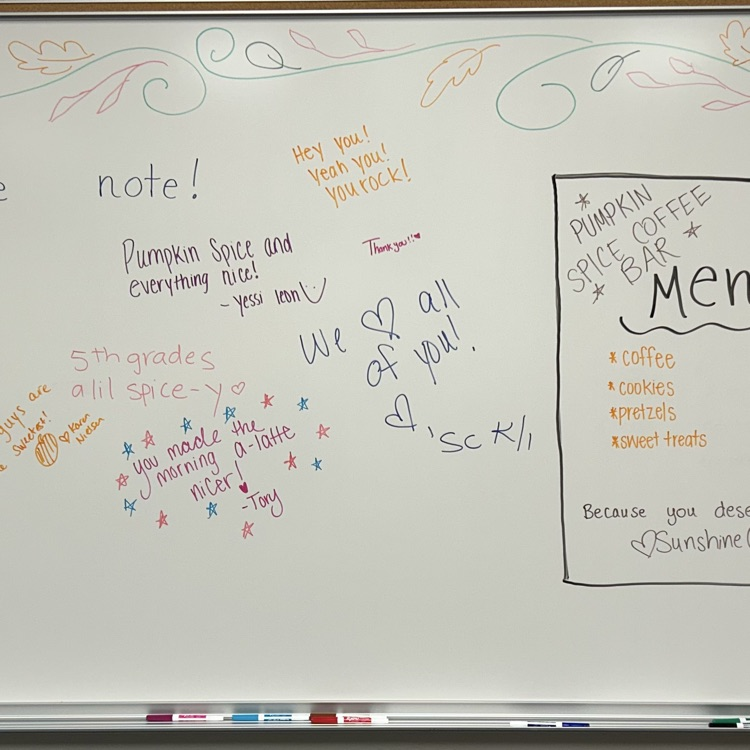 note!
Hey you!
Yeah you!
you rock!
Pumpkin Spice and
everything nice!
- Yessi leon
Thank you!!
We ♡ all
of you!
♡, SC K/1
5th grades
a lil spice-y ♡
guys are
sweetest!
♡ Karin
Nielsen
you made the
morning a-latte
nicer!
-Tory
PUMPKIN
SPICE COFFEE
BAR
Men
* coffee
* cookies
* pretzels
* sweet treats
Because you dese
♡ Sunshine